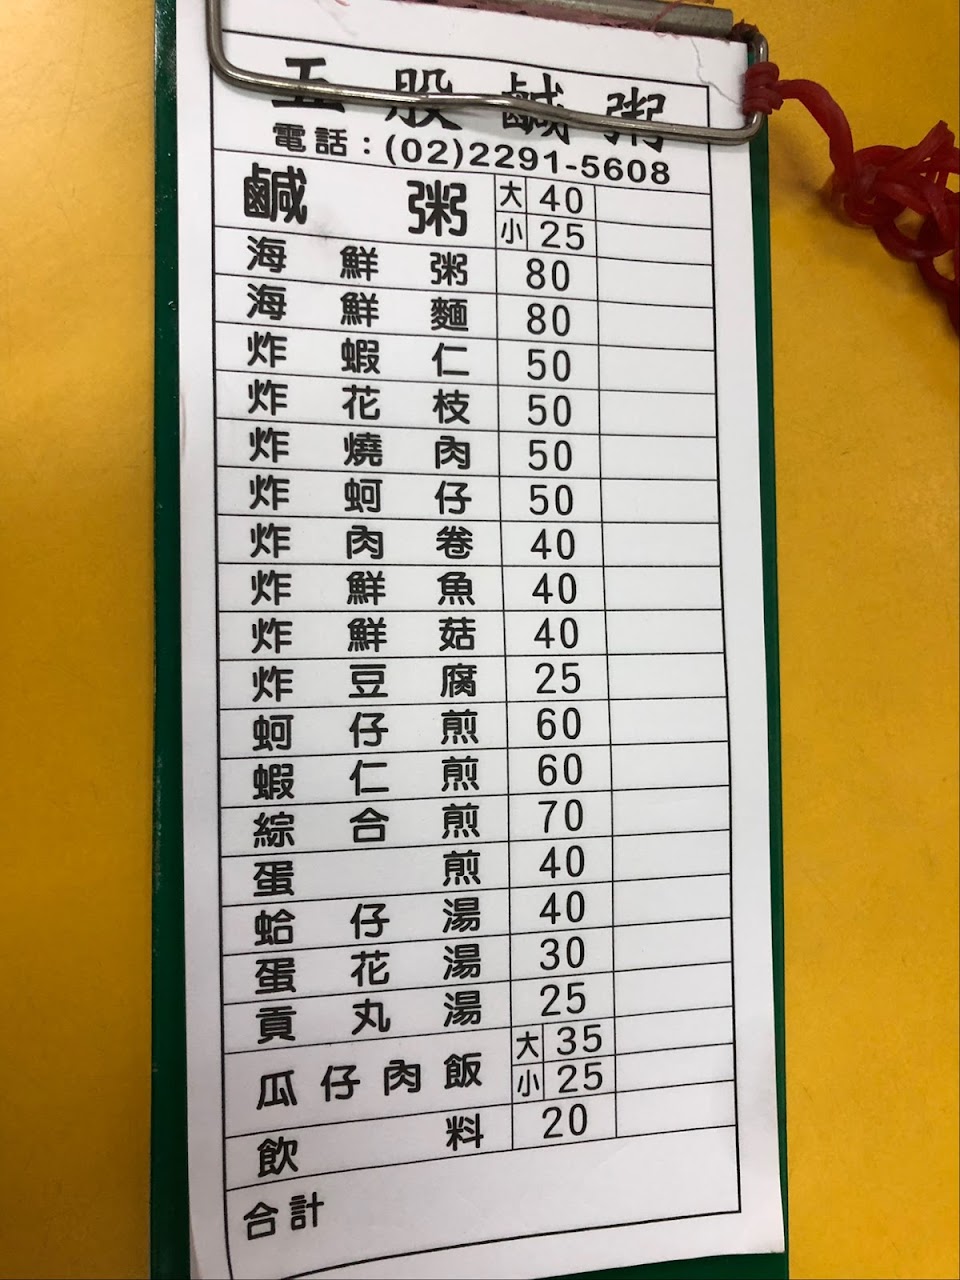 五股鹹粥
電話：(02)2291-5608
鹹粥 大 40
小 25
海鮮粥 80
海鮮麵 80
炸蝦仁 50
炸花枝 50
炸燒肉 50
炸蚵仔 50
炸肉卷 40
炸鮮魚 40
炸鮮菇 40
炸豆腐 25
蚵仔煎 60
蝦仁煎 60
綜合煎 70
蛋煎 40
蛤仔湯 40
蛋花湯 30
貢丸湯 25
瓜仔肉飯 大 35
小 25
飲料 20
合計